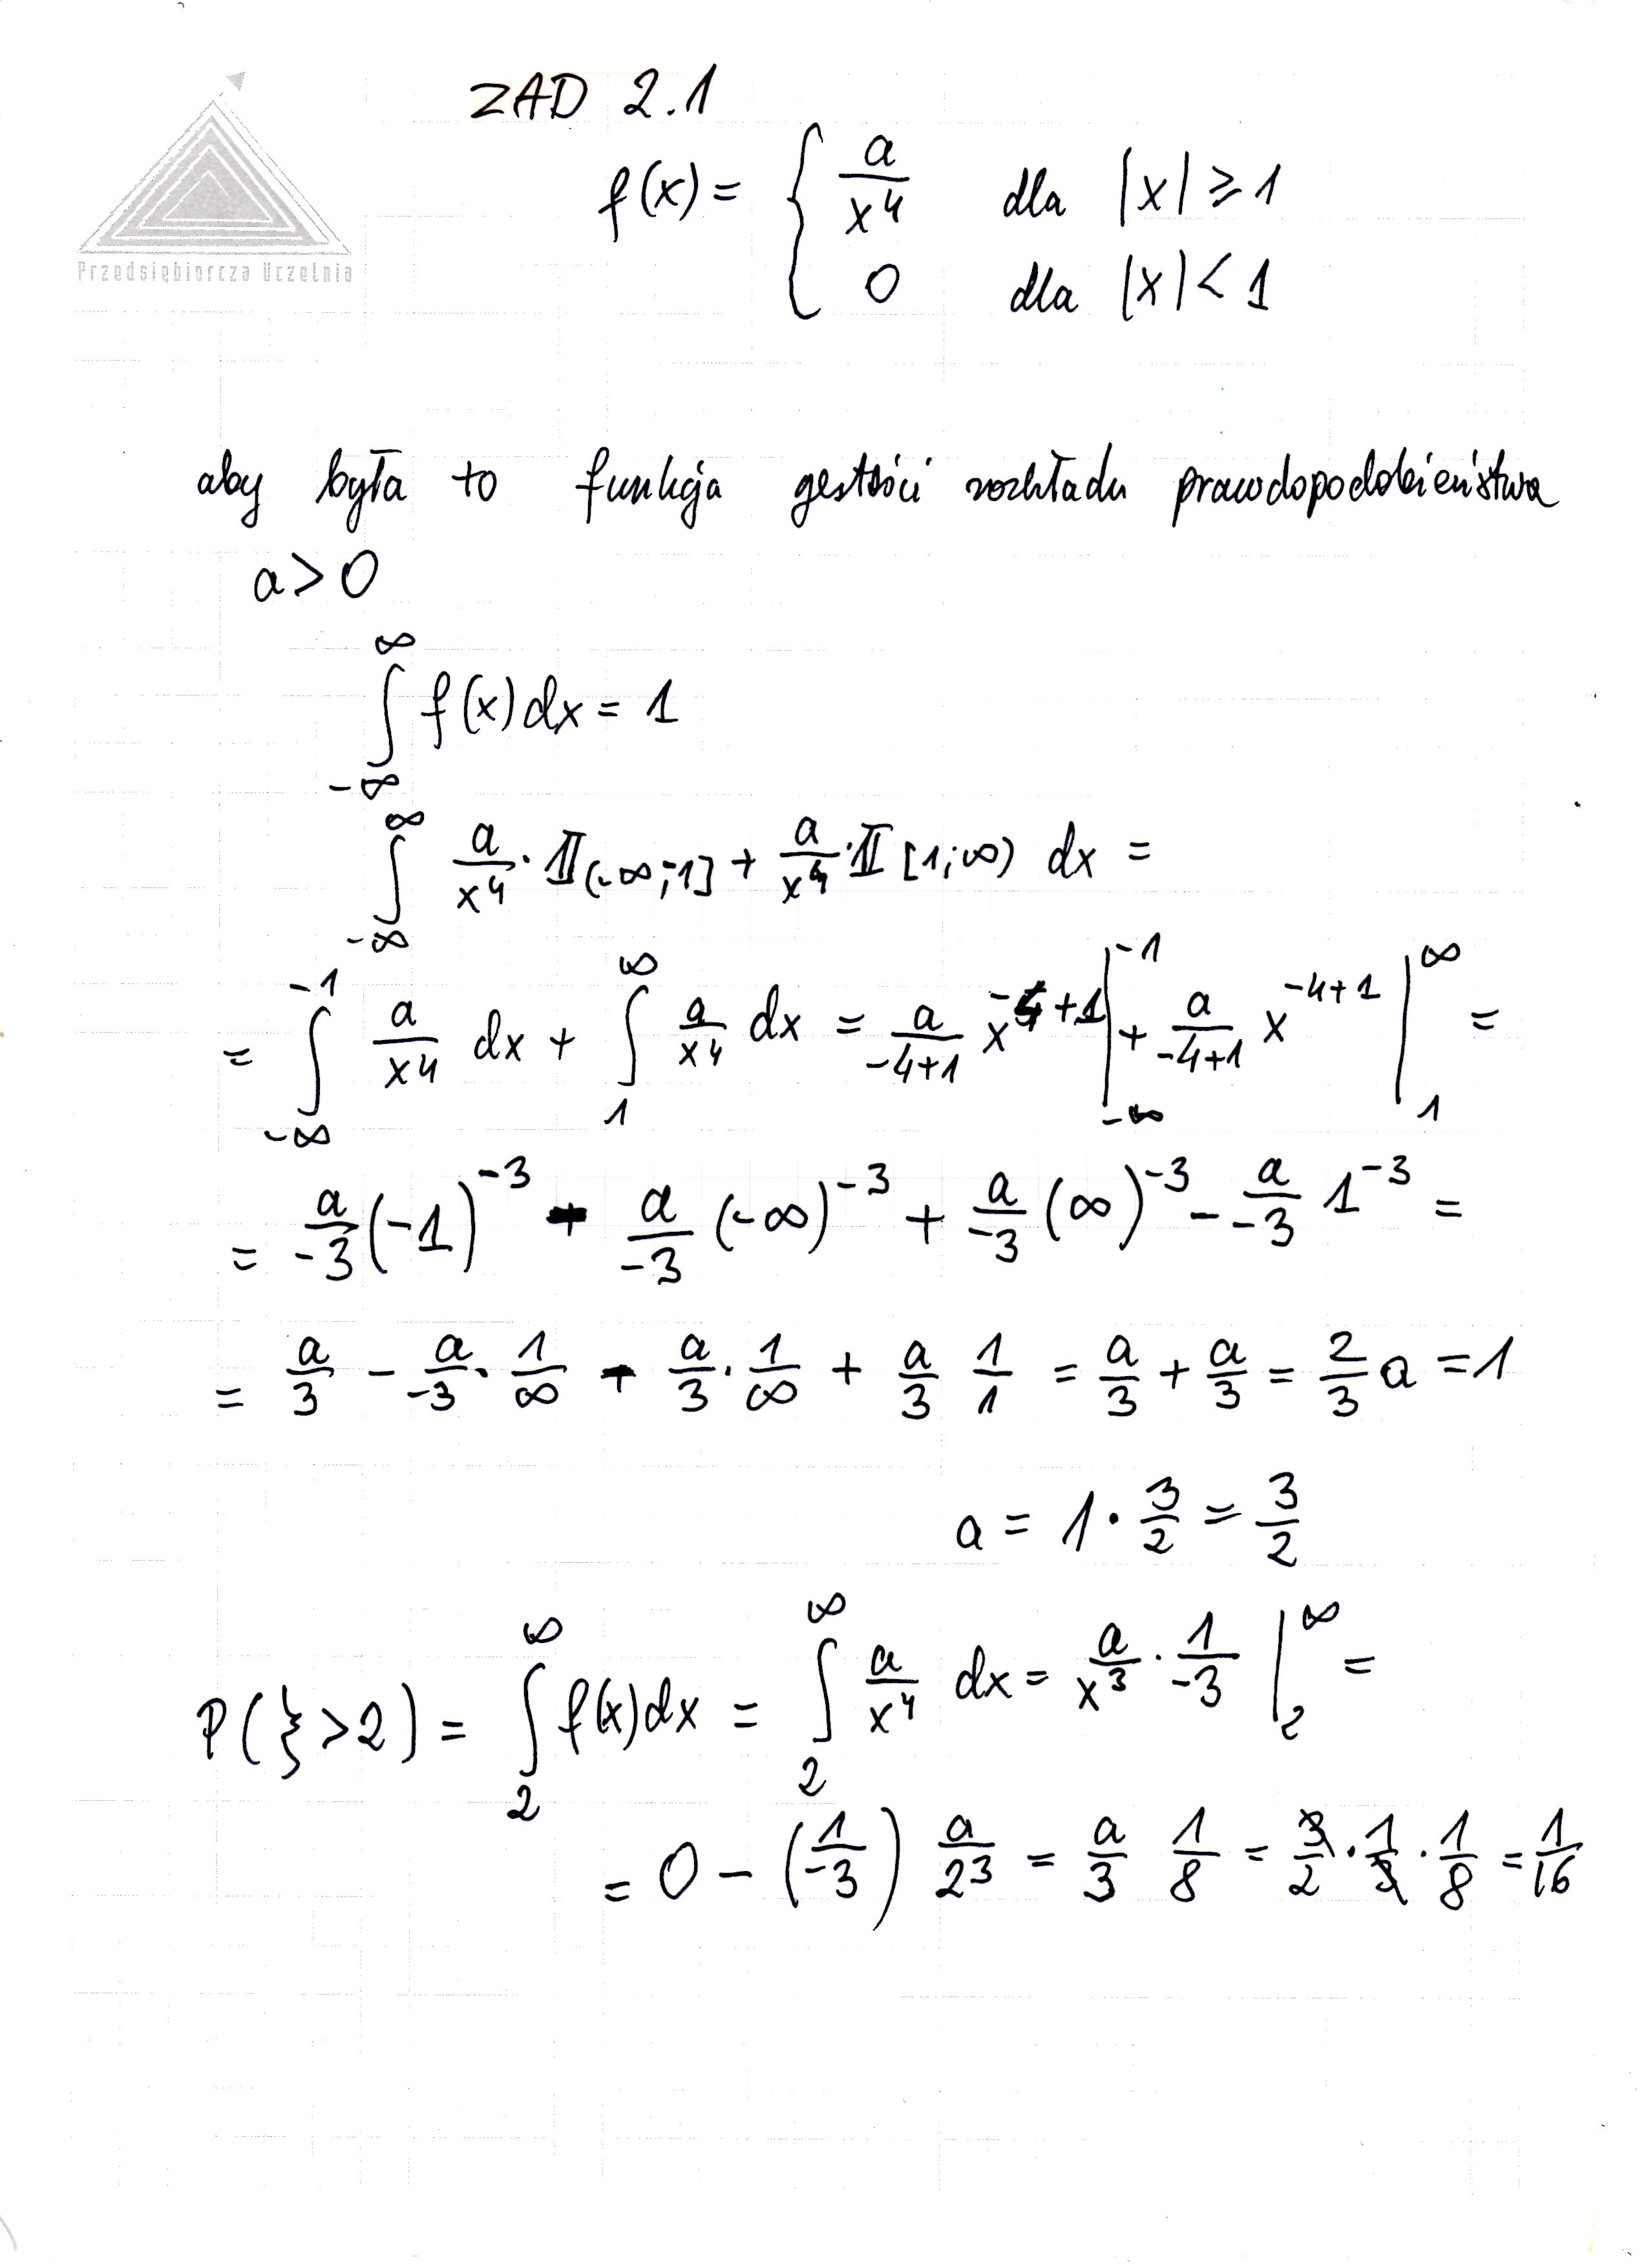 ZAD 2.1
Przedsiębiorcza Uczelnia
f(x) = { a/x⁴ dla |x| ≥ 1
0 dla |x| < 1
aby była to funkcja gęstości rozkładu prawdopodobieństwa
a > 0
∫_{-∞}^{∞} f(x) dx = 1
∫_{-∞}^{∞} a/x⁴ · 𝟙(-∞;-1] + a/x⁴ · 𝟙[1;∞) dx =
= ∫_{-∞}^{-1} a/x⁴ dx + ∫_{1}^{∞} a/x⁴ dx = a/(-4+1) x^{-4+1} |_{-∞}^{-1} + a/(-4+1) x^{-4+1} |_{1}^{∞} =
= a/-3 (-1)^{-3} - a/-3 (-∞)^{-3} + a/-3 (∞)^{-3} - a/-3 1^{-3} =
= a/3 - a/-3 · 1/∞ - a/3 · 1/∞ + a/3 1/1 = a/3 + a/3 = 2/3 a = 1
a = 1 · 3/2 = 3/2
P(ξ > 2) = ∫_{2}^{∞} f(x) dx = ∫_{2}^{∞} a/x⁴ dx = a/x³ · 1/-3 |_{2}^{∞} =
= 0 - (1/-3) a/2³ = a/3 1/8 = 3/2 · 1/3 · 1/8 = 1/16